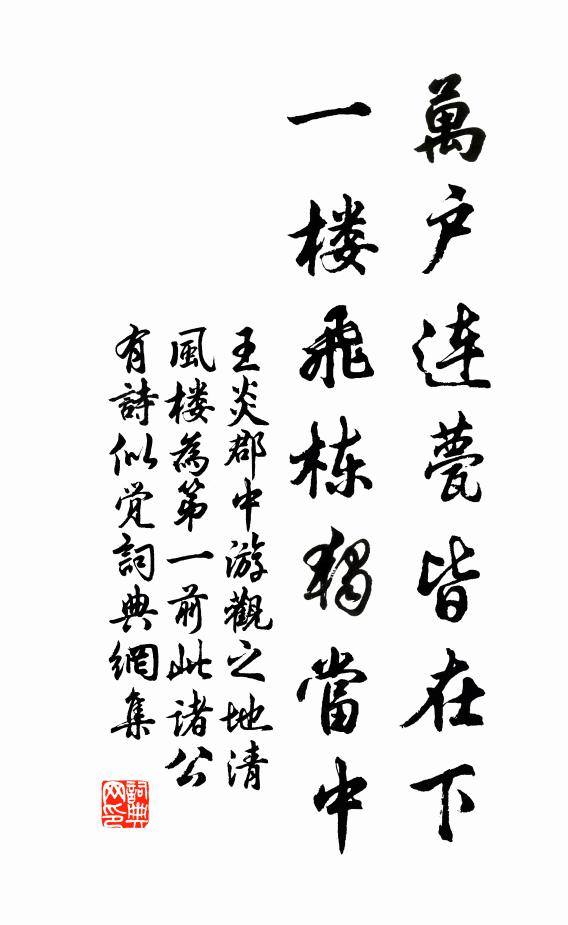 萬户連甍皆在下
一楼飛栋獨當中
王炎郡中游觀之地清
風楼為第一前此諸公
有詩似觉詞典網集
詞典网印